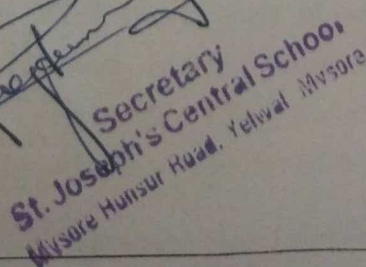 Secretary
St. Joseph's Central School
Mysore Hunsur Road, Yelwal Mysore